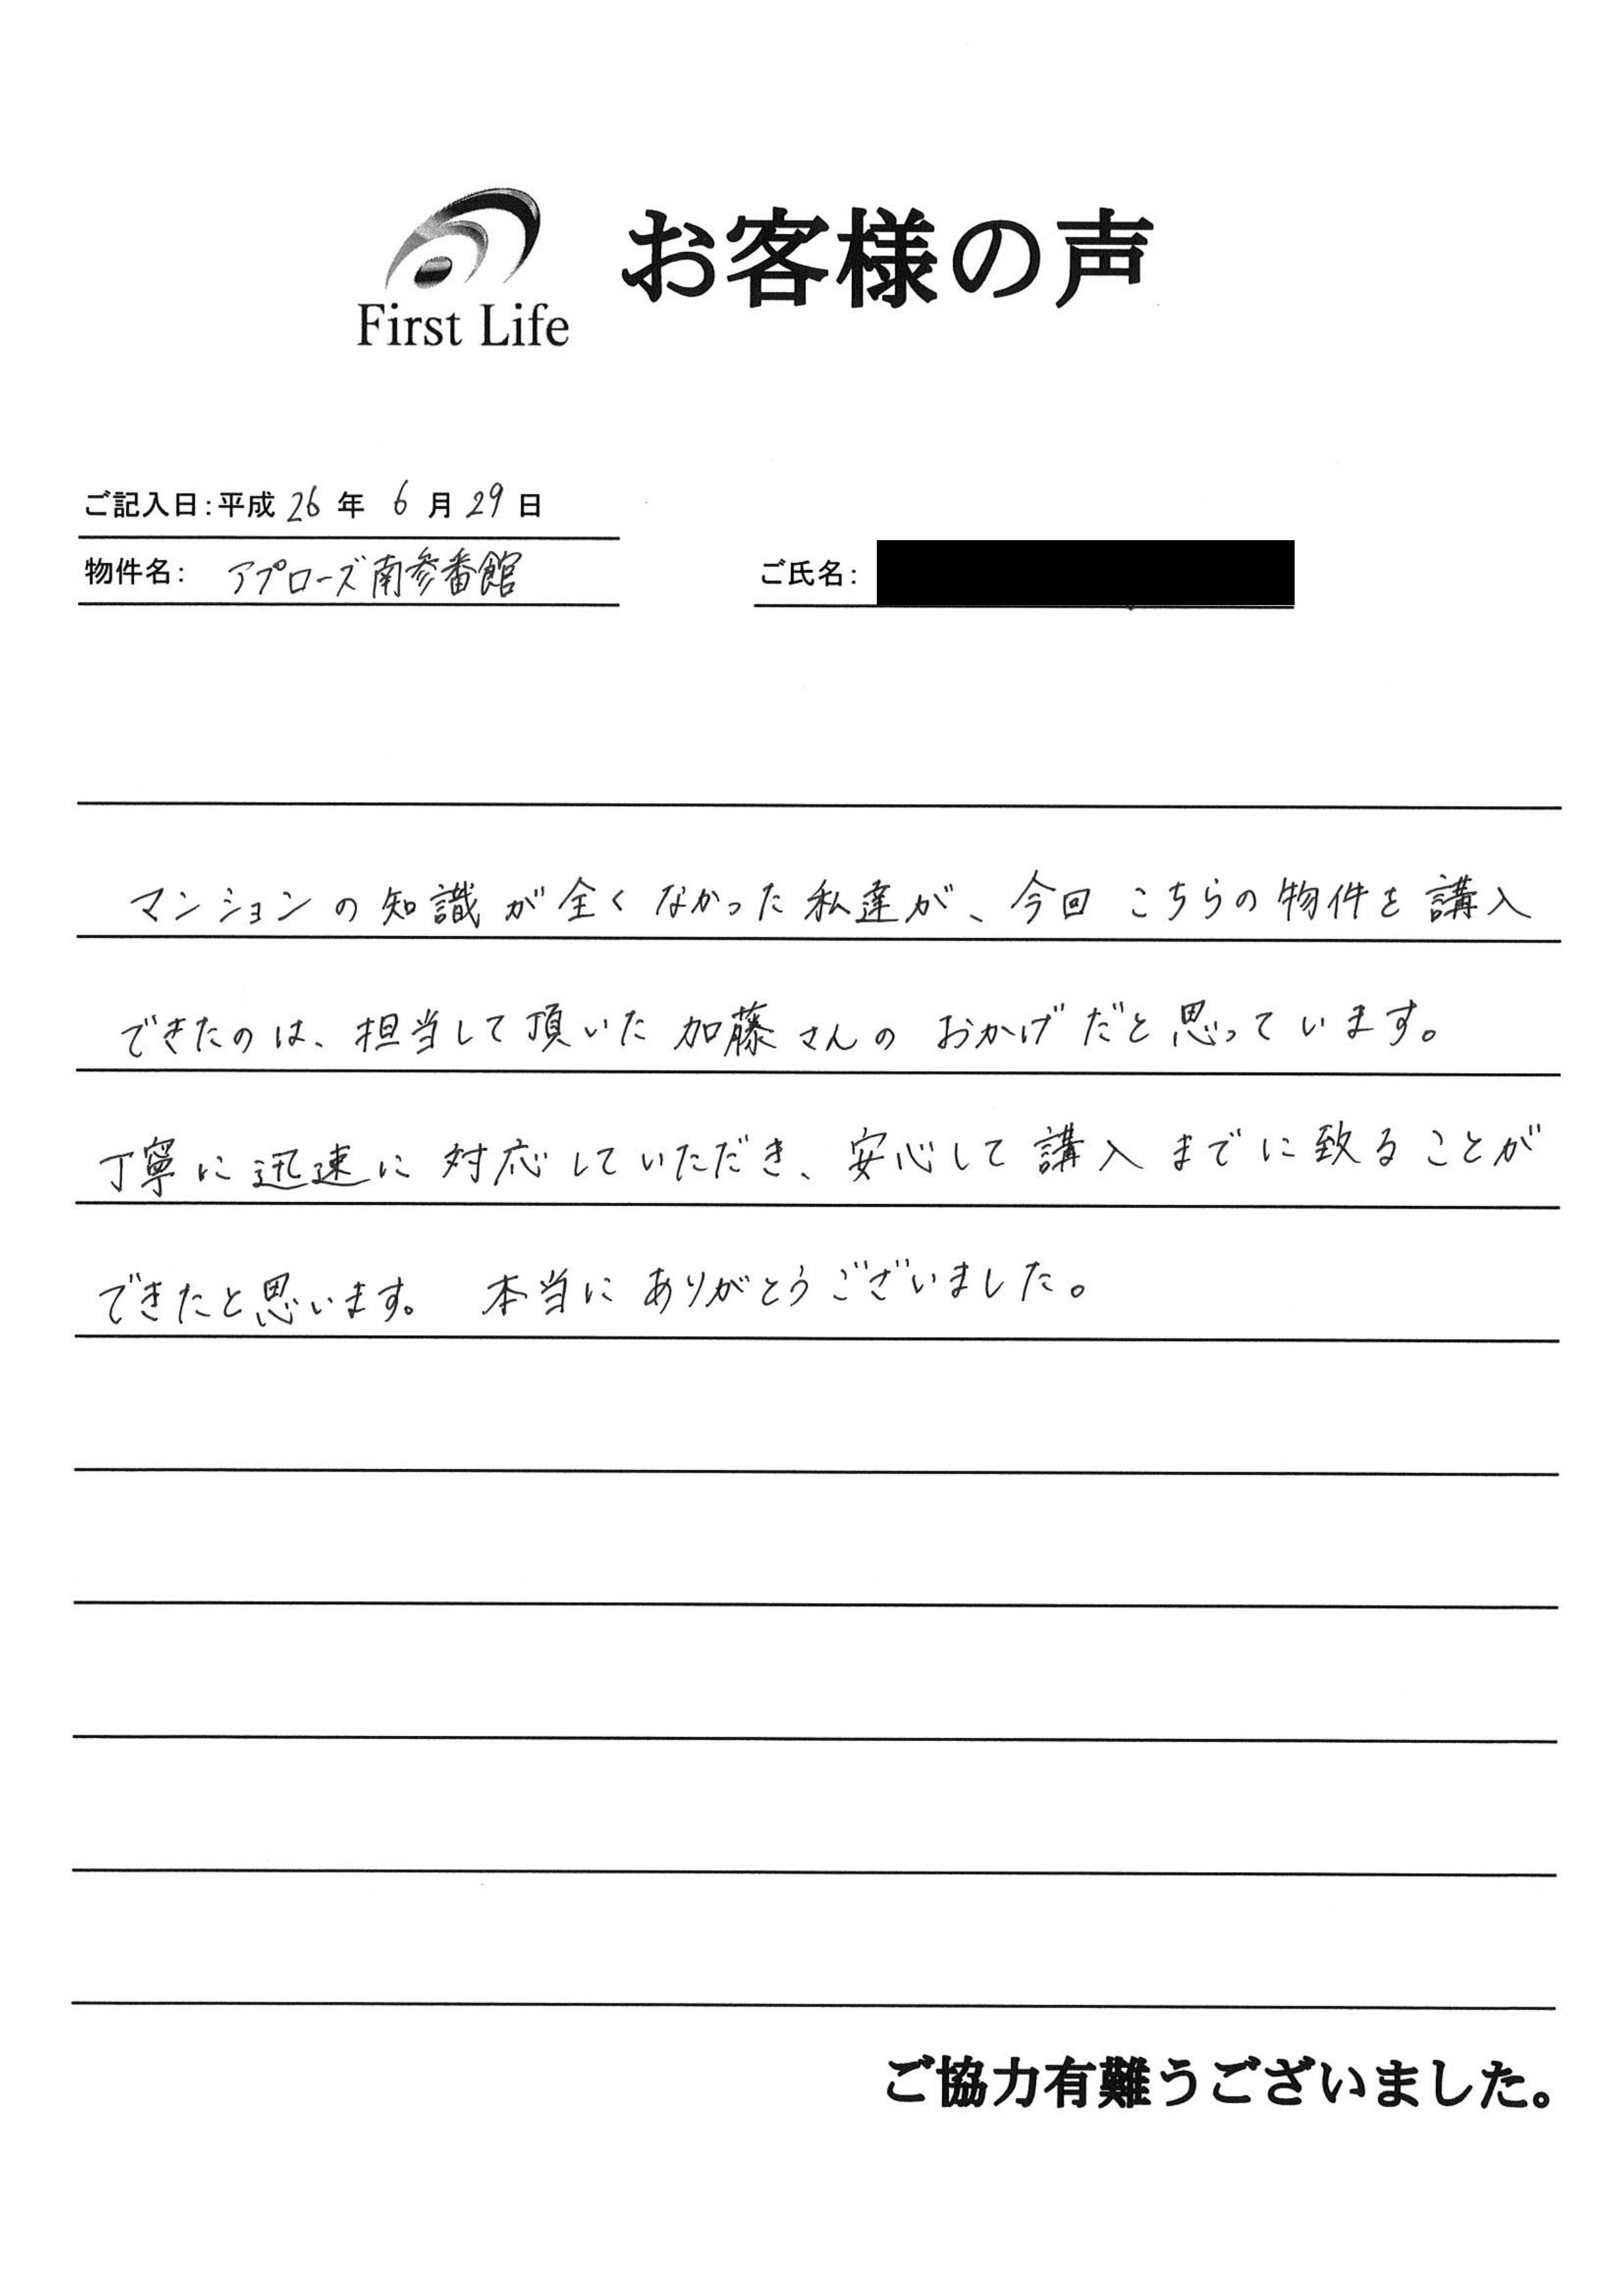 お客様の声
First Life
ご記入日:平成 26 年 6 月 29 日
物件名: アプローズ南参番館
ご氏名:
マンションの知識が全くなかった私達が、今回こちらの物件を講入
できたのは、担当して頂いた加藤さんのおかげだと思っています。
丁寧に迅速に対応していただき、安心して講入までに致ることが
できたと思います。 本当にありがとうございました。
ご協力有難うございました。